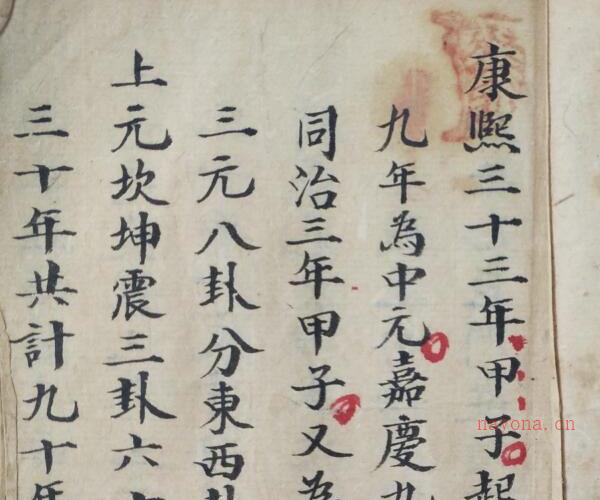 康熙三十三年甲子起
九年為中元嘉慶九
同治三年甲子又為
三元八卦分東西
上元坎坤震三卦六
三十年共計九十年
nayona.cn